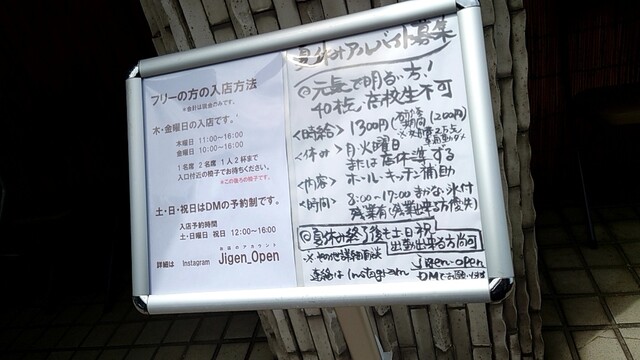 フリーの方の入店方法
※会計は現金のみです。
木・金曜日の入店です。
木曜日 11:00〜16:00
金曜日 10:00〜16:00
1名席 2名席 1人2杯まで
入口付近の椅子でお待ちください。
※この後ろの椅子です。
土・日・祝日はDMの予約制です。
入店予約時間
土・日曜日 祝日 12:00〜16:00
お店のアカウント
詳細は Instagram Jigen_Open
夏休みアルバイト募集
◎元気で明るい方!
40枚 高校生不可
<時給> 1300円 1200円)
<休み> 月・火曜日
または店休準ずる
<内容> ホール・キッチン補助
<時間> 8:00〜17:00 まかない 氷付
残業有(残業出来る方優先)
◎夏休み終了後も土・日・祝
出勤出来る方尚可
※その他詳細面談
連絡は Instagram jigen_open
DM